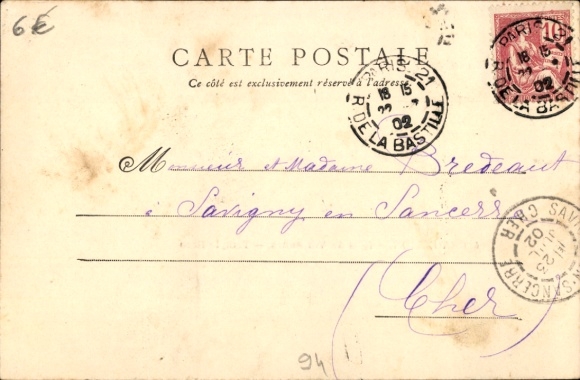 6 €
CARTE POSTALE
Ce côté est exclusivement réservé à l'adresse
PARIS 21
18 15
22
02
R. DE LA BASTILLE
PARIS 21
18 15
22
02
R. DE LA BASTILLE
10
Monsieur et Madame Bredeaut
à Savigny en Sancerre
SAVIGNY
23
02
N SANCERRE
CHER
(Cher)
94